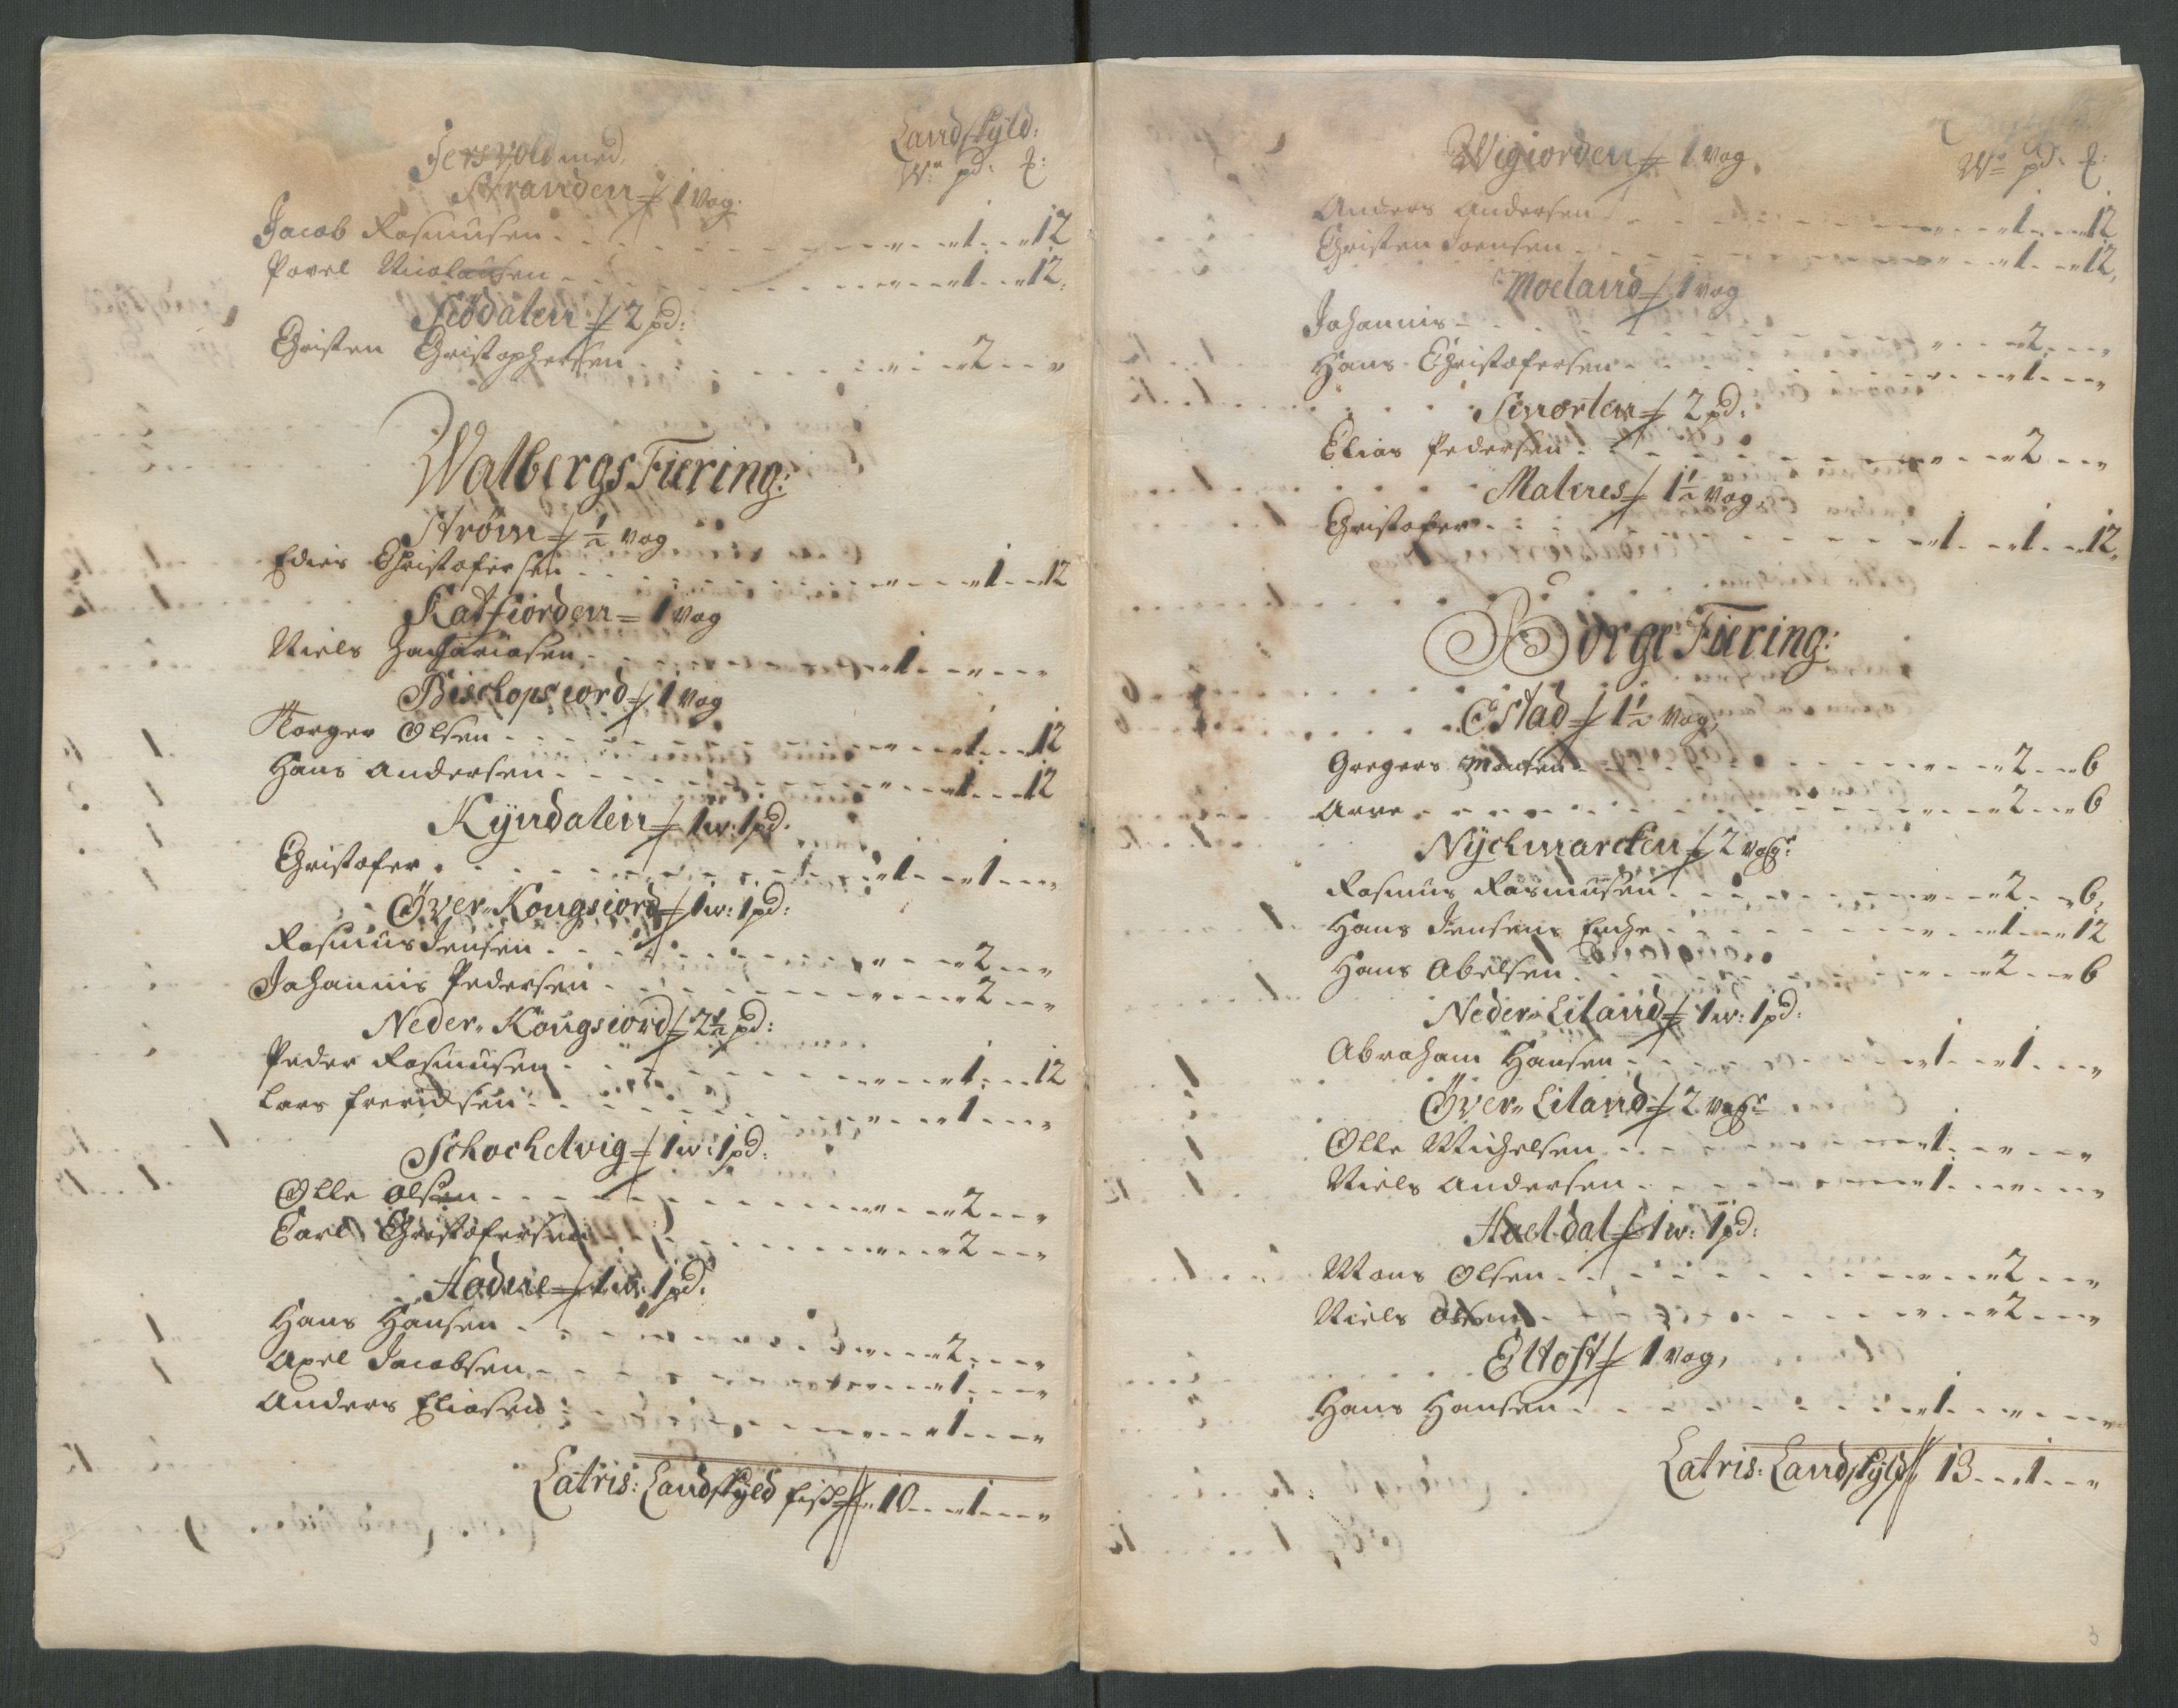 Jersvold med
Landskyld:
Stranden 1 Vog:
W: pd: :
Jacob Rasmusen - - - 1 - - 12
Povel Nicolausen - - - 1 - - 12
Siødalen 2 pd:
Christen Christophersen - - - 2 - - -
Walbergs Fiering:
Strøm ½ vog
Christofersen - - - 1 - - 12
Katfiorden = 1 vog
Niels Zachariasen - - - 1 - - -
Bischopsiord 1 vog
Torger Olsen - - - 1 - - 12
Hans Andersen - - - 1 - - 12
Kyndalen 1 w: 1 pd.
Christofer - - - 1 - - 1 - - -
Øver Kongsiord 1 w: 1 pd:
Rasmus Jensen - - - 2 - - -
Johannis Pedersen - - - 2 - - -
Neder Kougsiord 2½ pd:
Peder Rasmusen - - - 1 - - 12
Lars fredrichsen - - - 1 - - -
Schochelvig 1 w: 1 pd:
Olle Olsen - - - 2 - - -
Carl Christofersen - - - 2 - - -
1 w: 1 pd:
Hans Hansen - - - 2 - - -
Axel Jacobsen - - - 1 - - -
Anders Eliasen - - - 1 - - -
Latris: Landskyld fisk 10 - - 1 - - -
Wigiorden 1 vog.
W: pd: :
Anders Andersen - - - 1 - - 12
Christen Joensen - - - 1 - - 12
Moeland 1 vog
Johannis - - - 2 - - -
Hans Christofersen - - - 1 - - -
Smorten 2 pd:
Elias Pedersen - - - 2 - - -
Malnes 1½ vog:
Christofer - - - 1 - - 1 - - 12
Borge Fiering:
Estad 1½ vog,
Gregers Monsen - - - 2 - - 6
Arne - - - 2 - - 6
Nyckmarcken 2 voger
Rasmus Rasmusen - - - 2 - - 6
Hans Jensens Enche - - - 1 - - 12
Hans Abelsen - - - 2 - - 6
Neder Liland 1 w: 1 pd:
Abraham Hansen - - - 1 - - 1 - - -
Øver Liland 2 voger
Olle Michelsen - - - 1 - - -
Niels Andersen - - - 1 - - -
Haeldal 1 w: 1 pd:
Mons Olsen - - - 2 - - -
Niels Olsen - - - 2 - - -
Eltoft 1 vog,
Hans Hansen - - - 1 - - -
Latris: Landskyld 13 - - 1 - - -
3